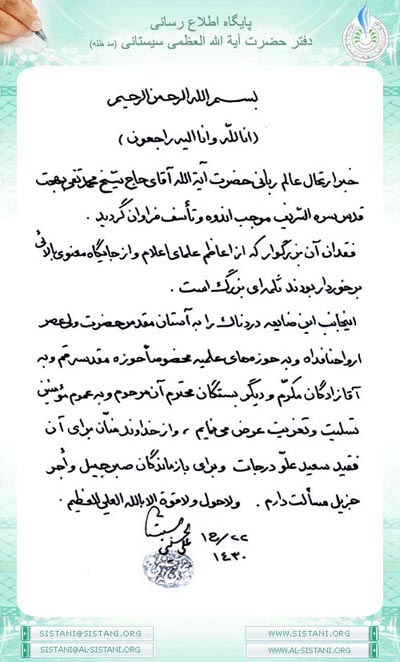 پایگاه اطلاع رسانی
دفتر حضرت آیة الله العظمی سیستانی (مد ظله)
بسم الله الرحمن الرحیم
(انا لله و انا الیه راجعون)
خبر ارتحال عالم ربانی حضرت آیة الله آقای حاج شیخ محمد تقی بهجت
قدس سره الشریف موجب اندوه و تأسف فراوان گردید .
فقدان آن بزرگوار که از اعاظم علمای اعلام و از جایگاه معنوی والائی
برخوردار بودند ثلمه‌ای بزرگ است .
اینجانب این ضایعه دردناک را به آستان مقدس حضرت ولی عصر
ارواحنا فداه و به حوزه‌های علمیه مخصوصاً حوزه مقدسه قم و به
آقازادگان مکرّم و دیگر بستگان محترم آن مرحوم و به عموم مؤمنین
تسلیت و تعزیت عرض می‌نمایم ، و از خداوند منّان برای آن
فقید سعید علوّ درجات و برای بازماندگان صبر جمیل و أجر
جزیل مسألت دارم . ولا حول ولا قوة الا بالله العلي العظيم .
٢٢/ج١
١٤٣٠
علي الحسيني
SISTANI@SISTANI.ORG
WWW.SISTANI.ORG
SISTANI@AL-SISTANI.ORG
WWW.AL-SISTANI.ORG